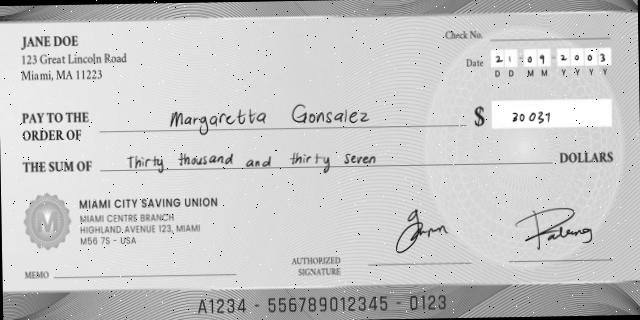 JANE DOE
123 Great Lincoln Road
Miami, MA 11223
Check No.
Date 21-09-2003
D D M M Y Y Y Y
PAY TO THE ORDER OF Margaretta Gonsalez $ 30037
THE SUM OF Thirty thousand and thirty seven DOLLARS
MIAMI CITY SAVING UNION
MIAMI CENTRS BRANCH
HIGHLAND, AVENUE 123, MIAMI
M56 7S - USA
MEMO
AUTHORIZED SIGNATURE
A1234 - 556789012345 - 0123